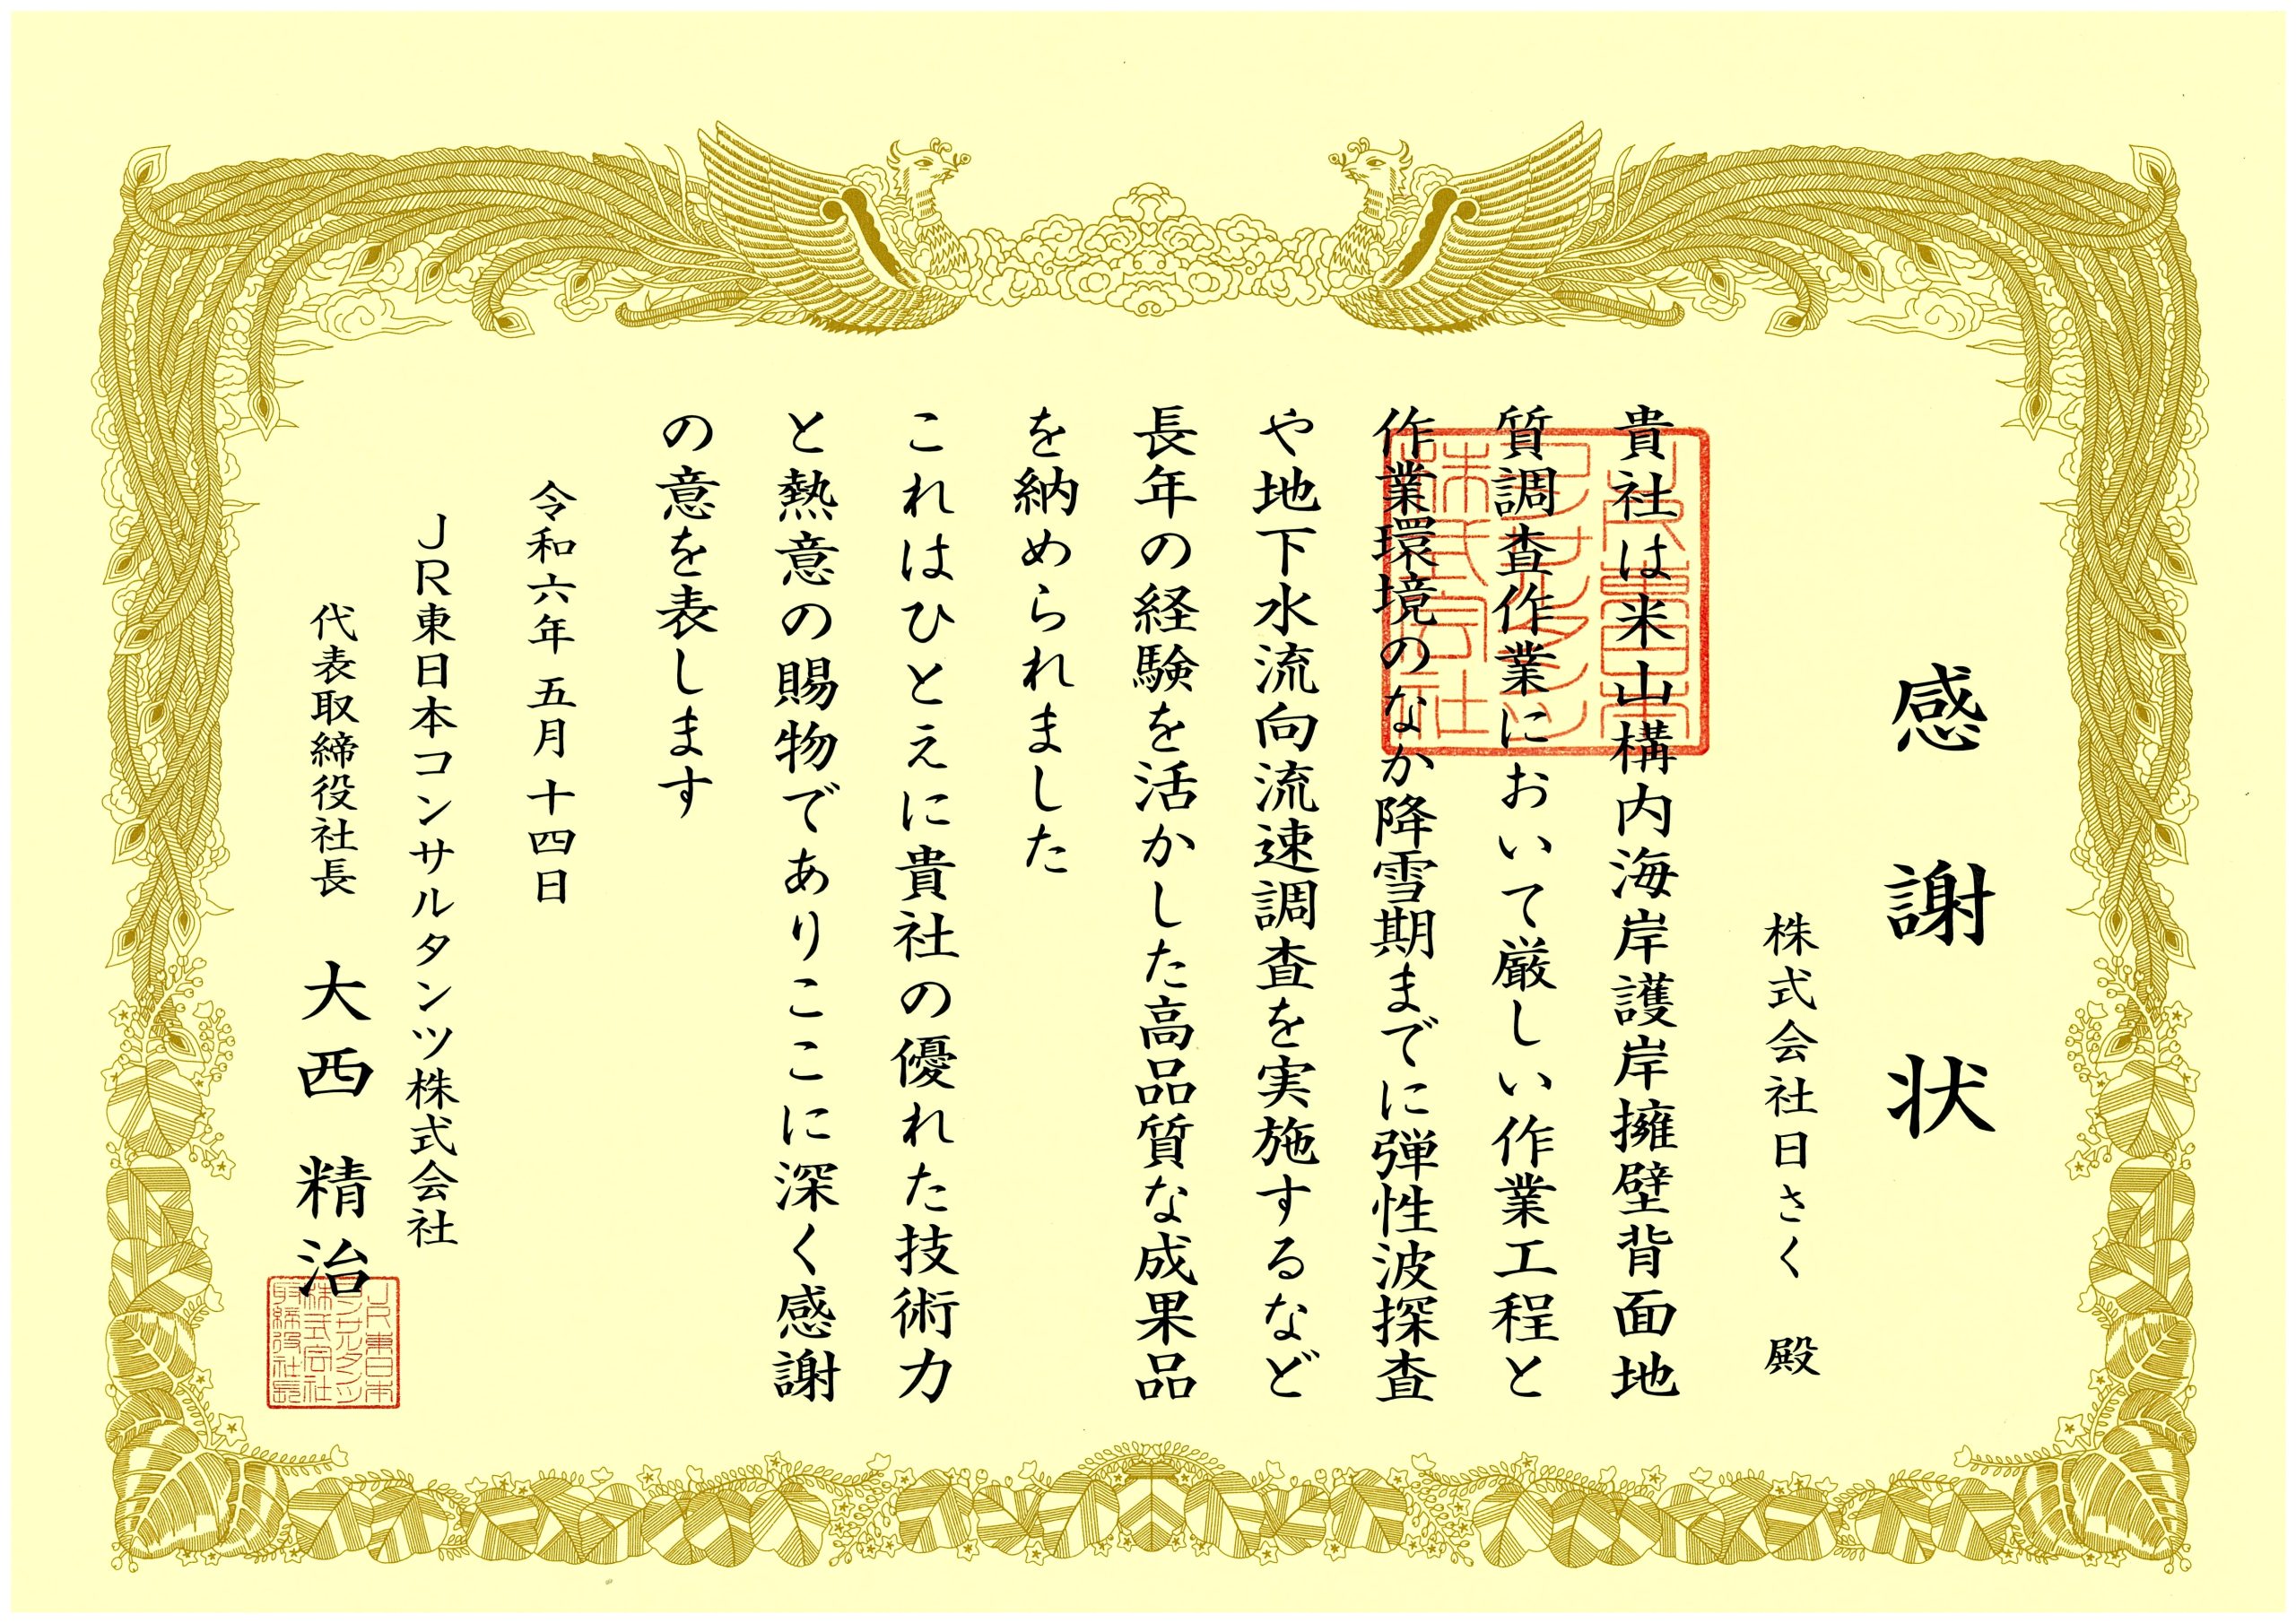 感謝状
株式会社日さく 殿
貴社は米山構内海岸護岸擁壁背面地
質調査作業において厳しい作業工程と
作業環境のなか降雪期までに弾性波探査
や地下水流向流速調査を実施するなど
長年の経験を活かした高品質な成果品
を納められました
これはひとえに貴社の優れた技術力
と熱意の賜物でありここに深く感謝
の意を表します
令和六年五月十四日
JR東日本コンサルタンツ株式会社
代表取締役社長 大西精治
JR東日本
コンサルタンツ
株式会社
JR東日本
コンサルタンツ
株式会社
取締役社長